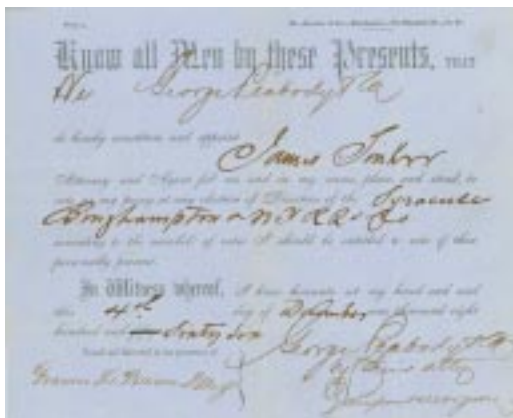 Know all Men by these Presents, THAT
We George Peabody & Co
do hereby constitute and appoint
James
Attorney and Agent for me and in my name, place and stead, to
vote as my proxy at any election of Directors of the Syracuse
Binghampton & N Y R R Co
according to the number of votes I should be entitled to vote if then
personally present.
In Witness whereof, I have hereunto set my hand and seal
this 4th day of December one thousand eight
hundred and Sixty six
Sealed and delivered in the presence of
George Peabody & Co
by their atty